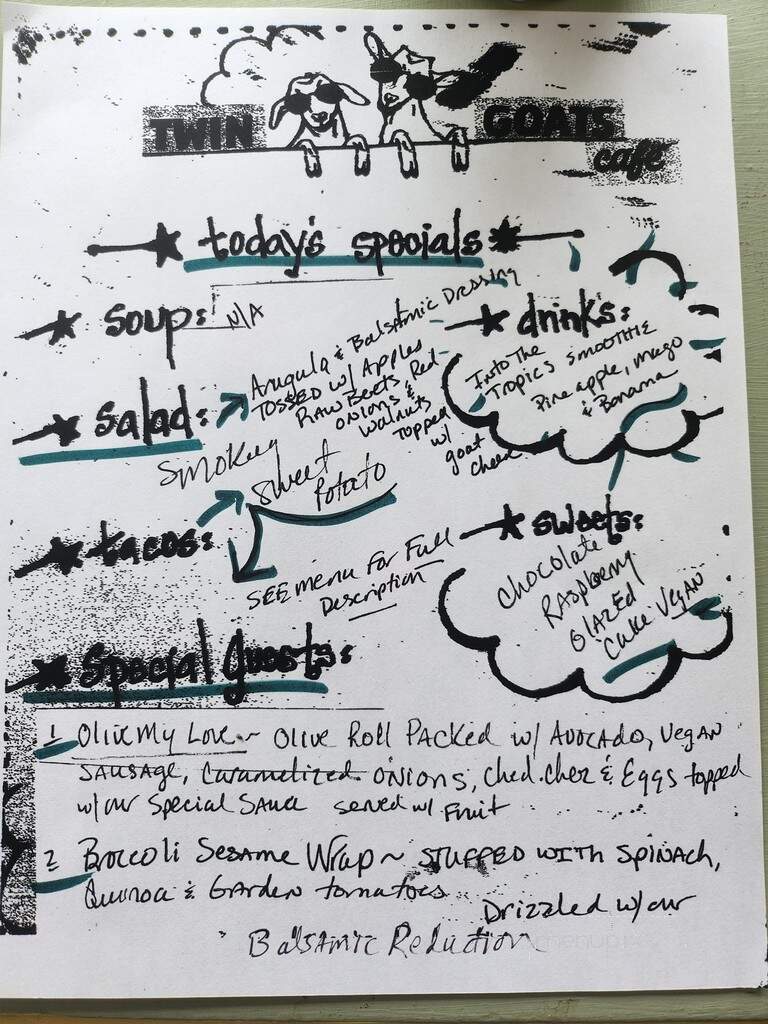 TWIN GOATS
café
today's specials
soup: N/A
salad:
Arugula & Balsamic Dressing
TOSSED w/ Apples
RAW Beets, Red
onions &
Walnuts
Topped
w/
goat
cheese
drink's:
Into The
Tropics SMOOTHIE
Pineapple, Mago
& Banana
tacos:
Smokey
Sweet
Potato
SEE menu For Full
Description
sweets:
Chocolate
RAspberry
GlAzED
Cake VEgAN
Special guests:
1 Olive My Love ~ Olive Roll PAcked w/ Avocado, Vegan
SAUSAge, Caramelized ONIONS, Ched. chez & Eggs topped
w/our Special Sauce served w/ Fruit
2 Broccoli Sesame Wrap ~ STUFFED WITH SPINACH,
Quinoa & GArden tomatoes
Drizzled w/our
Balsamic Reduction